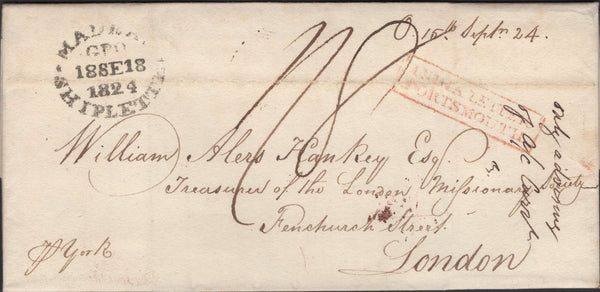 MADRAS
GPO
18SE18
1824
SHIPLETTER
15th Septr 24.
INDIA LETTER
PORTSMOUTH
William Alers Hankey Esqr.
Treasurer of the London Missionary Society
Fenchurch Street
London
pr York